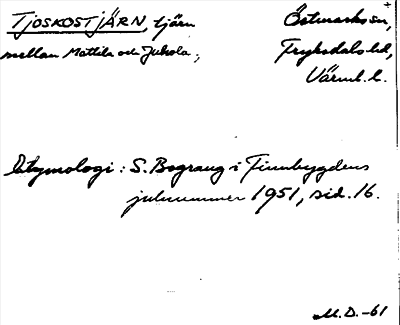 TJOSKOSTJÄRN, tjärn
mellan Mattila och Jukola;
Östmarks sn,
Fryksdals hd,
Värml. l.
Etymologi: S. Bograng i Finnbygdens
julnummer 1951, sid. 16.
M.D.-61